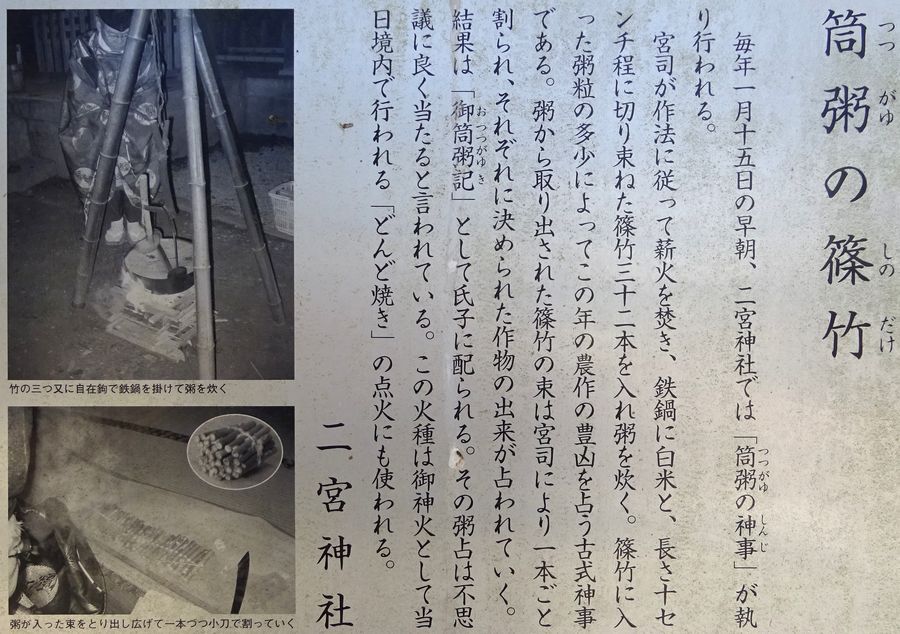 筒粥の篠竹
つつ がゆ しの だけ
毎年一月十五日の早朝、二宮神社では「筒粥の神事」が執
つつがゆ しんじ
り行われる。
宮司が作法に従って薪火を焚き、鉄鍋に白米と、長さ十セ
ンチ程に切り束ねた篠竹三十二本を入れ粥を炊く。篠竹に入
った粥粒の多少によってこの年の農作の豊凶を占う古式神事
である。粥から取り出された篠竹の束は宮司により一本ごと
割られ、それぞれに決められた作物の出来が占われていく。
結果は「御筒粥記」として氏子に配られる。その粥占は不思
おつつがゆき
議に良く当たると言われている。この火種は御神火として当
日境内で行われる「どんど焼き」の点火にも使われる。
二宮神社
竹の三つ又に自在鉤で鉄鍋を掛けて粥を炊く
粥が入った束をとり出し広げて一本づつ小刀で割っていく